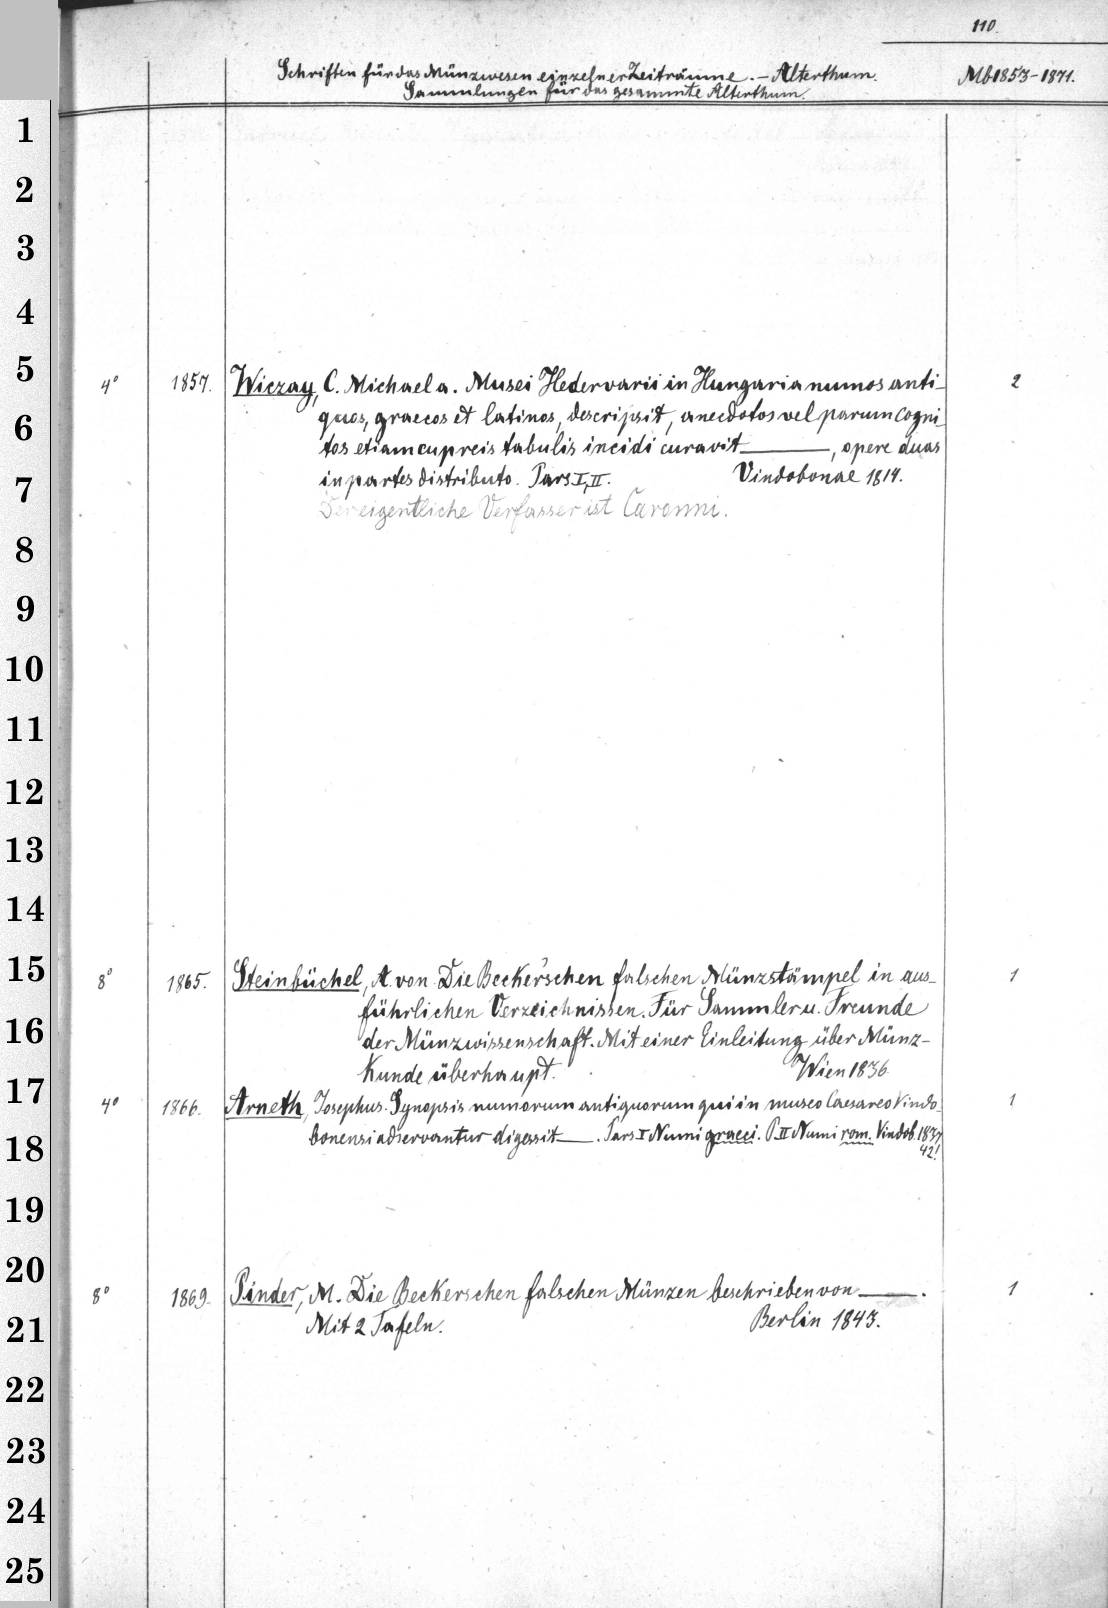 110.
Schriften für das Münzwesen einzelner Zeiträume. – Alterthum.
Mb 1853–1871.
Sammlungen für das gesammte Alterthum.
1
2
3
4
5
4° 1857. Wiczay, C. Michael a. Musei Hedervarii in Hungaria numos anti- 2
6
quos, graecos et latinos, descripsit, anecdotos vel parum cogni-
tos etiam cupreis tabulis incidi curavit ———, opere duas
7
in partes distributo. Pars I, II. Vindobonae 1814.
Der eigentliche Verfasser ist Caronni.
8
9
10
11
12
13
14
15
8° 1865. Steinbüchel, A. von. Die Becker'schen falschen Münzstämpel in aus- 1
führlichen Verzeichnissen. Für Sammler u. Freunde
16
der Münzwissenschaft. Mit einer Einleitung über Münz-
Kunde überhaupt. Wien 1836
17
4° 1866. Arneth, Josephus. Synopsis numorum antiquorum qui in museo Caesareo Vindo- 1
18
bonensi adservantur digessit ———. Pars I Numi graeci. P. II Numi rom. Vindob. 1837
42!
19
20
8° 1869. Pinder, M. Die Beckerschen falschen Münzen beschrieben von ———. 1
21
Mit 2 Tafeln. Berlin 1843.
22
23
24
25